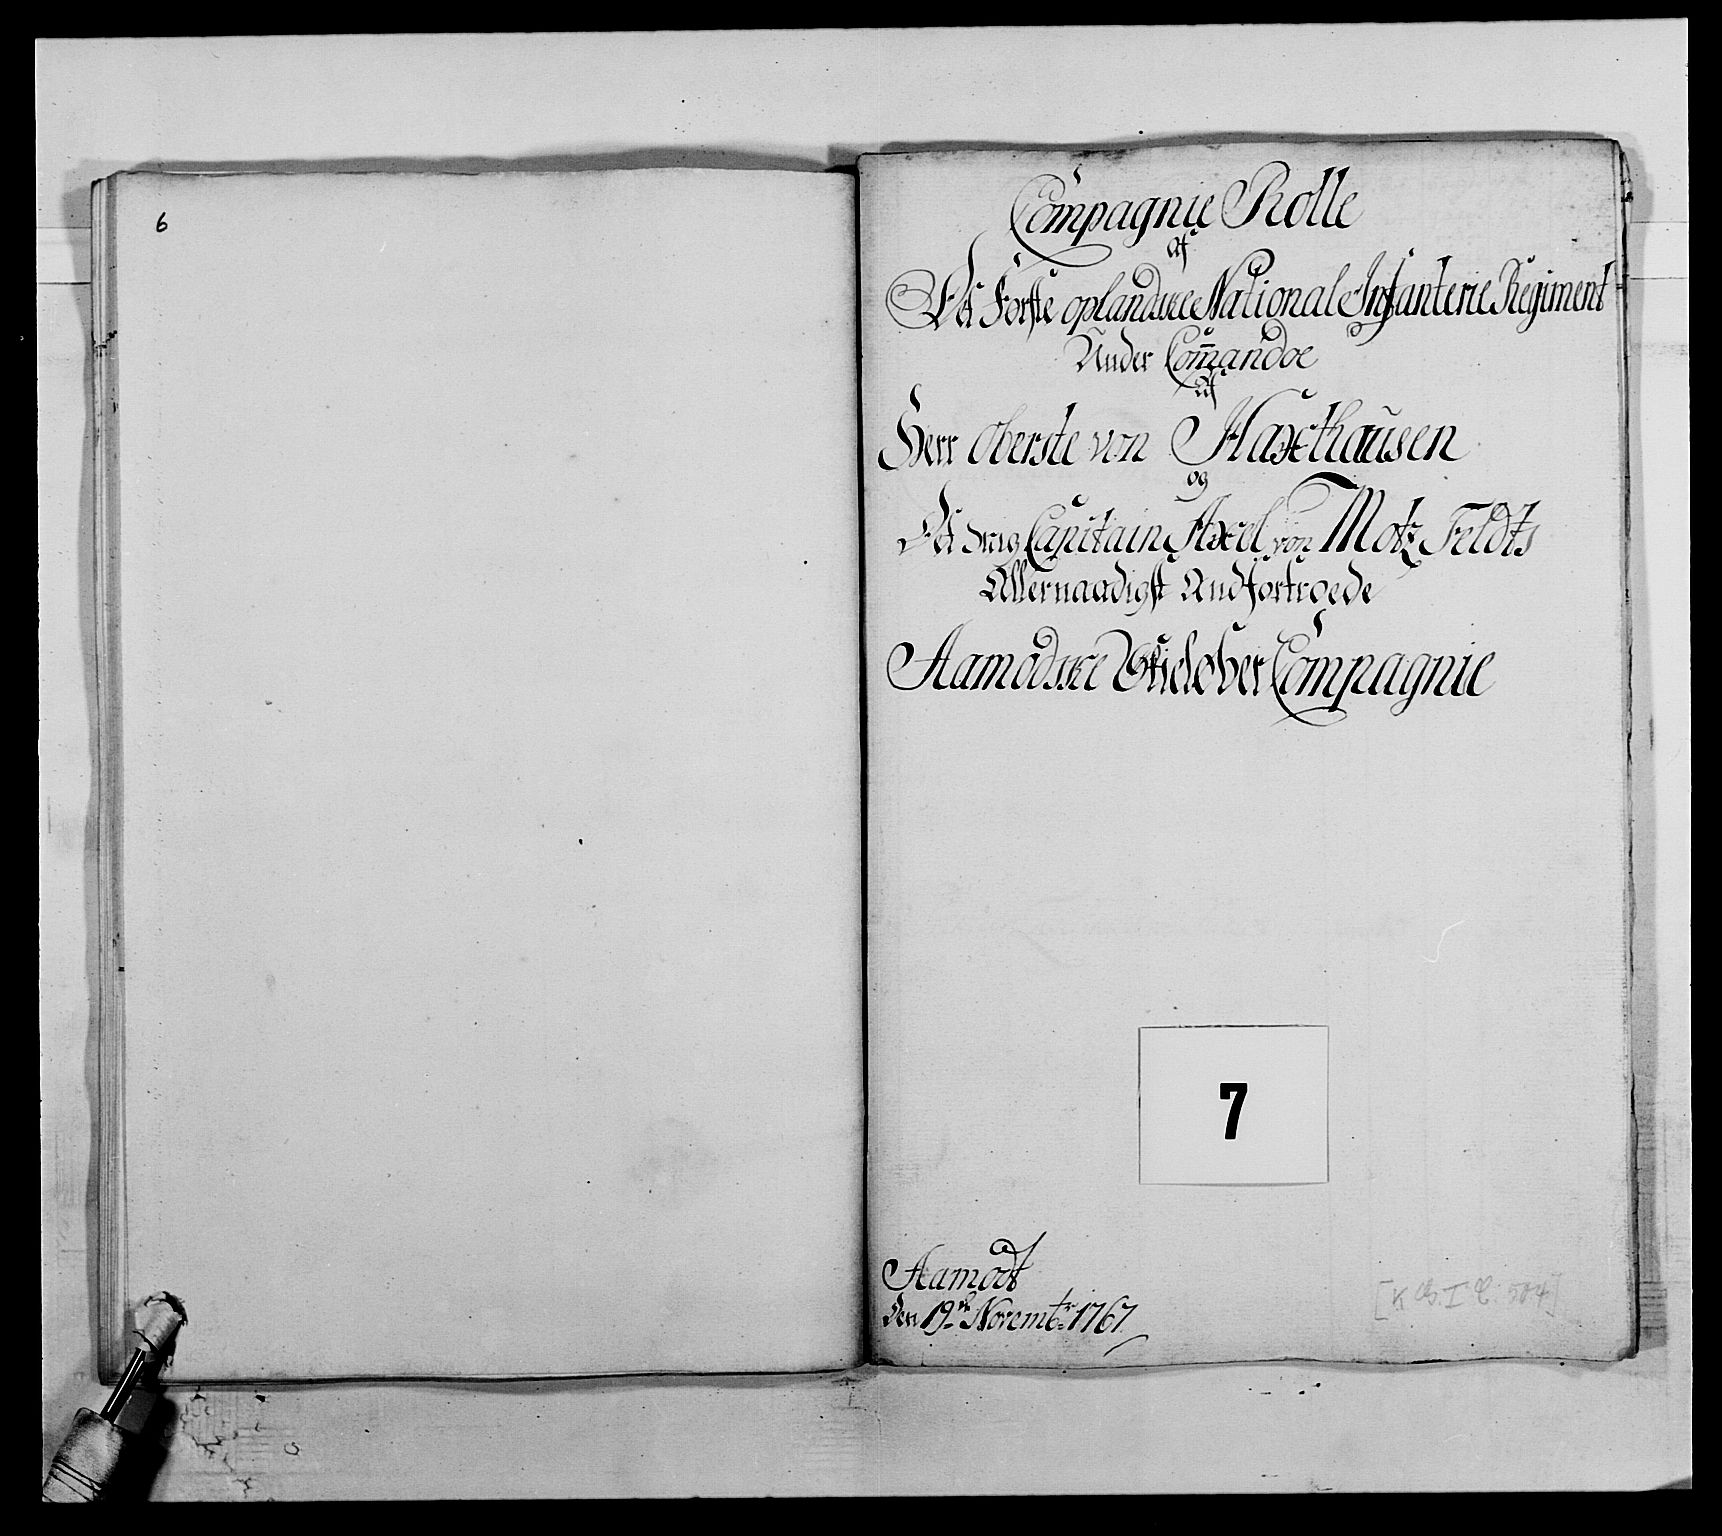 6
Compagnie Rolle
af
Det Første oplandske National Infanterie Regiment
Under Com̄andoe
af
Herr Oberste von Haxthausen
og
Det mig Capitain Axel von Motz Feldts
Allernaadigst Andfortroede
Aamodske Skieløber Compagnie
7
Aamodt
Den 19de Novembr 1767